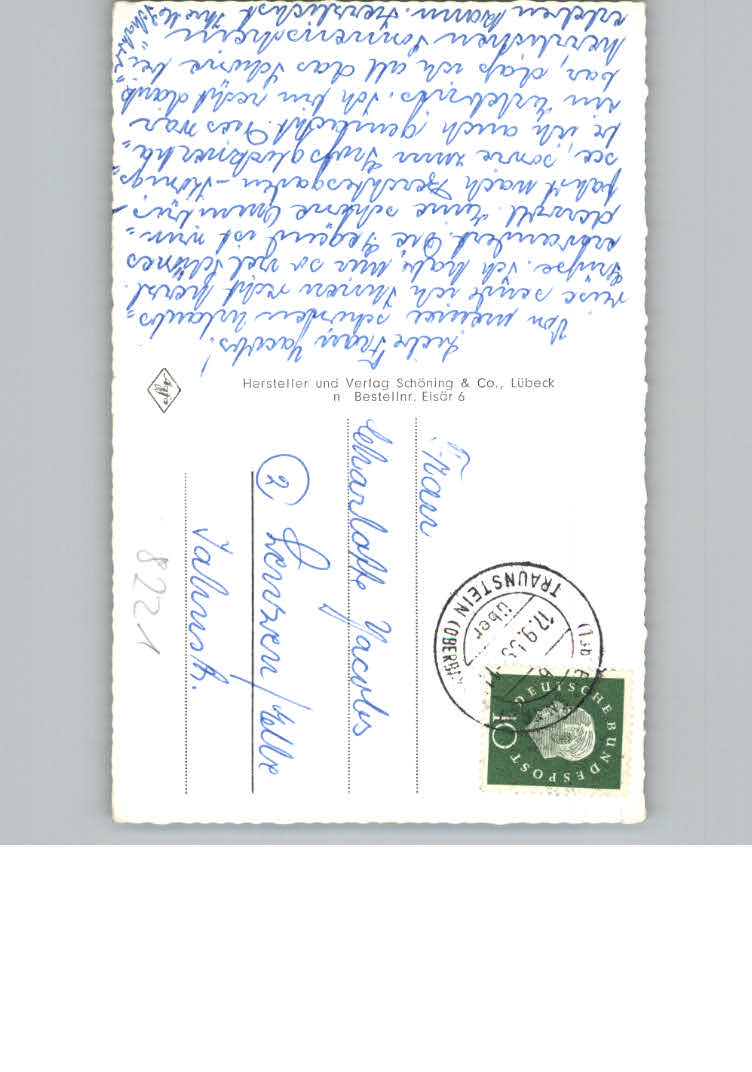 Liebe Frau Jacobs!
Von meiner schönsten Urlaubs=
reise sende ich Ihnen recht herzl.
Grüße. Ich habe hier so viel Schönes
erwandert. Die Gegend ist wun=
dervoll. Eine schöne Omnibus=
fahrt nach Berchtesgaden-Königs=
see, sowie zum Großglockner ha=
be ich auch gemacht. Dies war
ein Erlebnis. Ich bin recht dank
bar, daß ich all das Schöne bei
herrlichem Sonnenschein
erleben kann. Herzlichst Ihre
Hersteller und Verlag Schöning & Co., Lübeck
n Bestellnr. Eisär 6
Frau
Charlotte Jacobs
(2) Lenzen/Elbe
Jahnstr.
8221
TRAUNSTEIN (OBERB
über
17.9.
DEUTSCHE BUNDESPOST
10